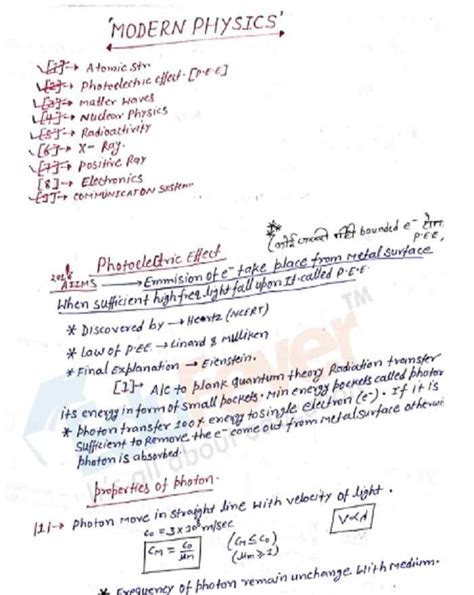 'MODERN PHYSICS'
[1]→ Atomic Str.
[2]→ Photoelectric effect. [P.E.E]
[3]→ matter waves
[4]→ Nuclear Physics
[5]→ Radioactivity
[6]→ X-Ray.
[7]→ Positive Ray
[8]→ Electronics
[9]→ COMMUNICATON System
bounded e⁻
P.E.E,
Photoelectric Effect
AIIMS → Emmision of e⁻ take place from metal surface
When sufficient high freq. light fall upon It called P.E.E.
* Discovered by → Heartz (NCERT)
* Law of P.EE. → Linard & Mulliken
* Final Explanation → Eienstein.
[1]→ A/c to plank quantum theory Radiation transfer
its energy in form of small pockets. Min energy pockets called photon
* photon transfer 100% energy to single electron (e⁻). If it is
sufficient to Remove, the e⁻ come out from Metal surface otherwi
photon is absorbed.
properties of photon.
[1]→ Photon move in straight line with velocity of light.
C₀ = 3 × 10⁸ m/sec
V∝λ
Cₘ = C₀/μₘ
(Cₘ ≤ C₀)
(μₘ ≥ 1)
* Frequency of photon remain unchange with medium.